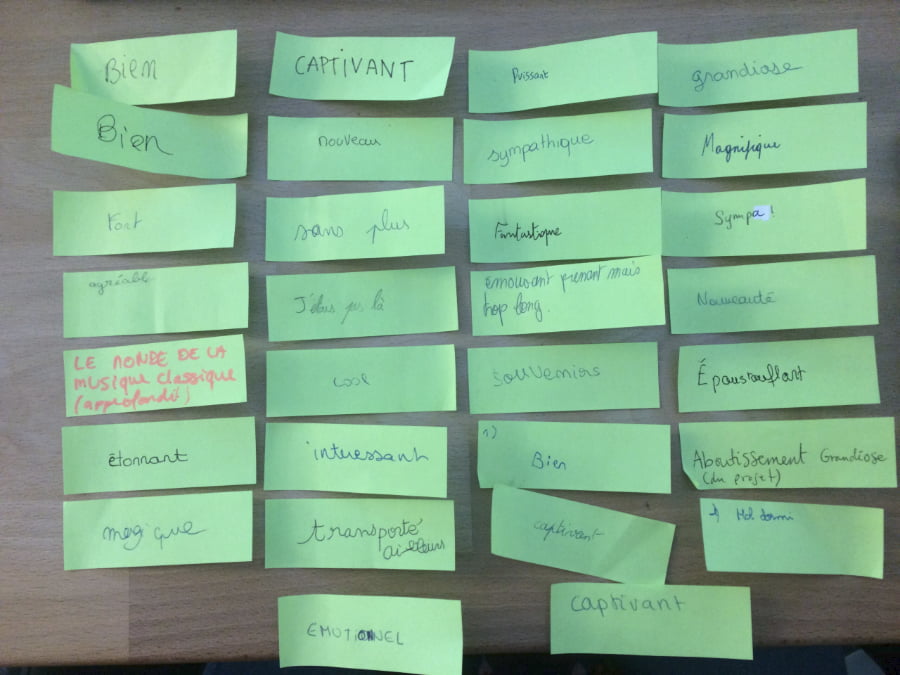 Bien
CAPTIVANT
Puissant
grandiose
Bien
nouveau
sympathique
Magnifique
Fort
sans plus
Fantastique
Sympa !
agréable
J'étais pas là
émouvant prenant mais
trop long.
Nouveauté
LE MONDE DE LA
MUSIQUE CLASSIQUE
(approfondi)
cool
souvenirs
Époustouflant
étonnant
intéressant
1)
Bien
Aboutissement Grandiose
(du projet)
magique
transporté
ailleurs
captivant
1) Mal dormi
EMOTIONNEL
captivant